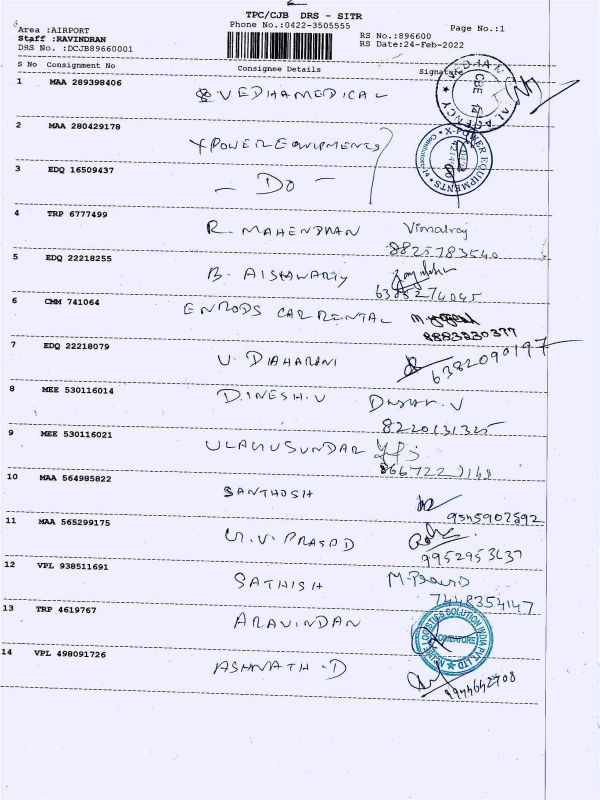 TPC/CJB DRS - SITR
Phone No.:0422-3505555
Page No.:1
Area :AIRPORT
Staff :RAVINDRAN
DRS No. :DCJB89660001
RS No.:896600
RS Date:24-Feb-2022
S No Consignment No Consignee Details Signature
1 MAA 289398406
VEDHAMEDICAL
2 MAA 280429178
X POWER EQUIPMENTS
X-POWER EQUIPMENTS
3 EDQ 16509437
— DO —
4 TRP 6777499
R. MAHENDRAN Vimalraj
8825783540
5 EDQ 22218255
B. AISHWARYA
6 CMM 741064
ENRODS CAR RENTAL
8883230377
7 EDQ 22218079
6382090197
8 MEE 530116014
DINESH.V
8220131325
9 MEE 530116021
ULAGUSUNDAR
10 MAA 564985822
SANTHOSH
11 MAA 565299175
U.V. PRASAD
9952953637
12 VPL 938511691
SATHISH
7448354147
13 TRP 4619767
ARAVINDAN
LOGISTICS SOLUTION INDIA PVT. LTD
COIMBATORE
14 VPL 498091726
ASHWATH .D